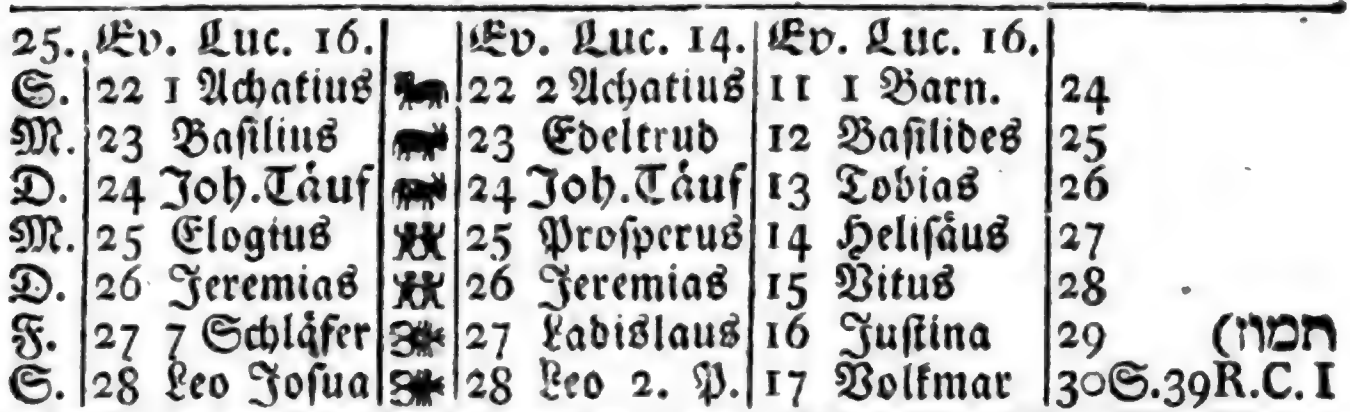 25. Ev. Luc. 16. Ev. Luc. 14. Ev. Luc. 16.
S. 22 1 Achatius 22 2 Achatius 11 1 Barn. 24
M. 23 Basilius 23 Edeltrud 12 Basilides 25
D. 24 Joh. Täuf 24 Joh. Täuf 13 Tobias 26
M. 25 Elogius 25 Prosperus 14 Helisäus 27
D. 26 Jeremias 26 Jeremias 15 Vitus 28
F. 27 7 Schläfer 27 Ladislaus 16 Justina 29 (תמוז
S. 28 Leo Josua 28 Leo 2. P. 17 Volkmar 30 S. 39 R. C. I